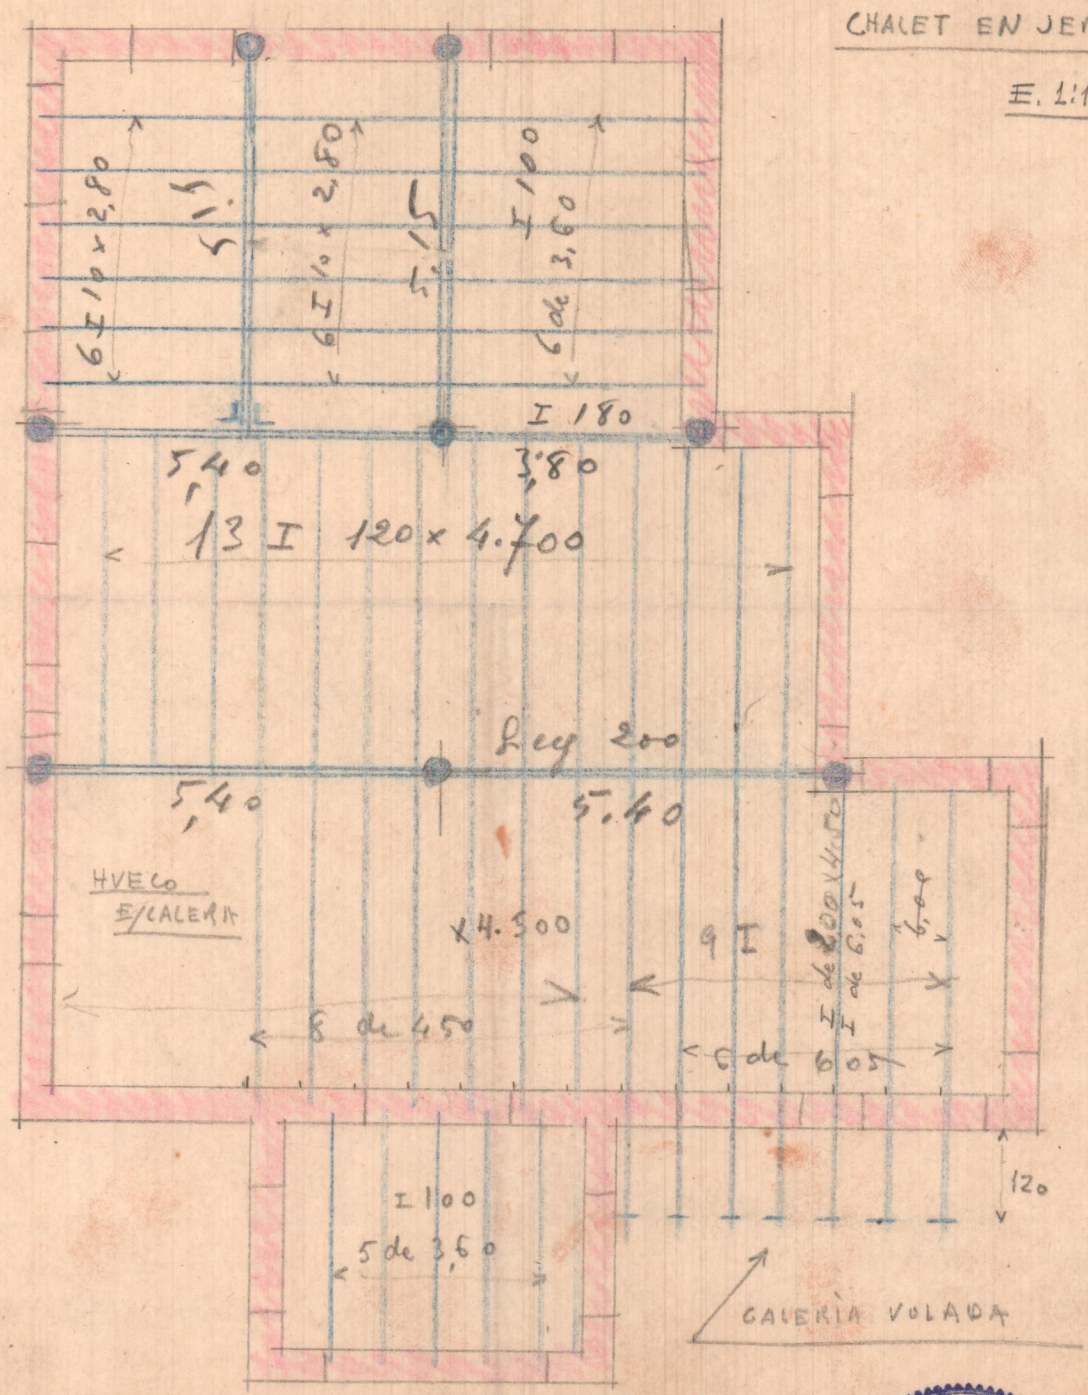 CHALET EN
E. 1:1
6 I 10 x 2,80
5,15
6 I 10 x 2,80
5,15
I 100
6 de 3,60
I 180
5,40
3,80
13 I 120 x 4.700
200
5,40
5.40
HUECO
ESCALERA
x 4.500
9 I
I de 6.05
6,00
8 de 450
6 de 6 05
I 100
5 de 3,60
120
GALERÍA VOLADA